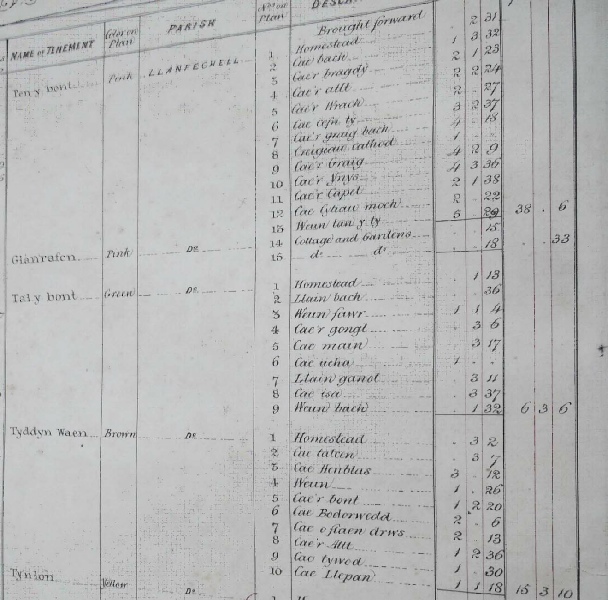 NAME OF TENEMENT Color on Plan PARISH No. on Plan
Brought forward . 2 31
Pen y bont Pink LLANFECHELL 1 Homestead 1 3 32
2 Cae bach 2 1 23
3 Cae'r bragdy 2 2 24
4 Cae'r allt 2 . 27
5 Cae'r Wrach 3 2 37
6 Cae cefn ty 4 . 13
7 Cae'r graig bach 1 . .
8 Creigiau Cathod 4 2 9
9 Cae'r Graig 4 3 36
10 Cae'r Ynys 2 1 38
11 Cae'r Capel 2 . 22
12 Cae Cytiau moch 5 . 38 . 6
13 Waun tan y ty . . 15
14 Cottage and Gardens . . 18 . . 33
Glanrafon Pink Do. 15 do. do.
Tal y bont Green Do. 1 Homestead . 1 13
2 Llain bach . . 36
3 Waun fawr 1 1 4
4 Cae'r gongl . 3 6
5 Cae main . 3 17
6 Cae ucha 1 . .
7 Llain ganol . 3 11
8 Cae isa . 3 37
9 Waun bach . 1 32 6 3 6
Tyddyn Waen Brown Do. 1 Homestead . 3 2
2 Cae talcen . 3 7
3 Cae Henblas 3 . 12
4 Waun 1 . 26
5 Cae'r bont 1 2 20
6 Cae Bodorwedd 2 . 6
7 Cae o flaen drws 2 . 13
8 Cae'r Allt 1 2 36
9 Cae tywod 1 . 30
10 Cae Llepan 1 1 18 15 3 10
Tyn lon Yellow Do.